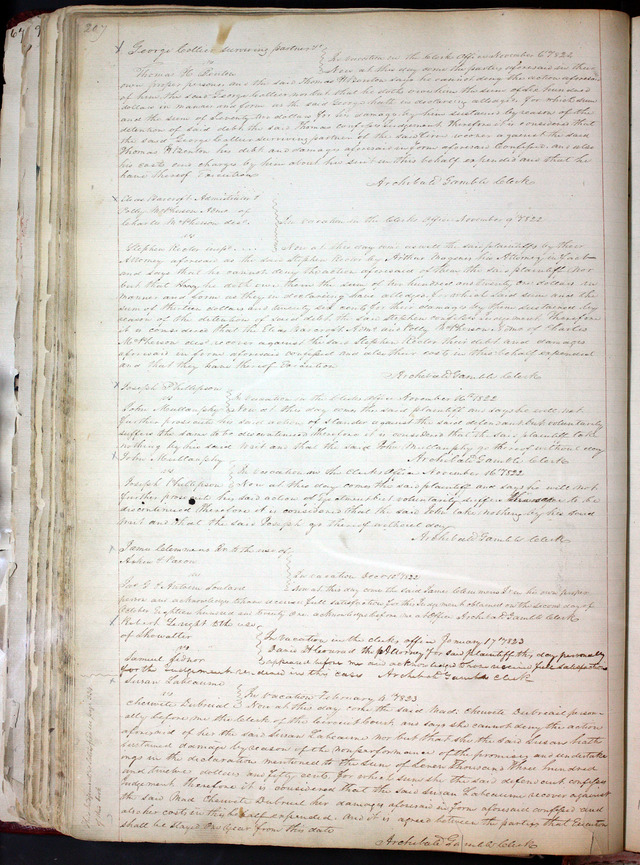 207
George Collier surviving partner &c
vs
In vacation in the Clerks Office November 6th 1822
Thomas H. Benton
Now at this day come the parties aforesaid in their
own proper persons and the said Thomas H Benton says he cannot deny the action aforesaid
of him the said George Collier nor but that he doth owe him the sum of Six hundred
dollars in manner and form as the said George hath in declaring alleaged for which sum
and the sum of Seventy two dollars for his damage by him sustained by reason of the
detention of said debt the said Thomas confesses judgment Therefore it is considered that
the said George Collier surviving partner of the recover against the said
Thomas H Benton his debt and damages aforesaid in form aforesaid Confessed and also
his costs and charges by him about his suit in this behalf expended and that he
have thereof Execution
Archibald Gamble Clerk
Elias Barcroft Administrator &
Polly McPherson Admx of
Charles McPherson decd.
vs
In vacation in the Clerks Office November 9th 1822
Stephen Rector
Now at this day come as well the said plaintiffs by their
Attorney aforesaid as the said Stephen Rector by Arthur Magenis his Attorney in fact
and says that he cannot deny the action aforesaid of them the said plaintiffs nor
but that he doth owe them the sum of hundred and twenty one dollars in
manner and form as they in declaring have alledged, for which said sum and the
sum of thirteen dollars and seventy six cents for their damages by them sustained by
reason of the detention of said debt the said Stephen confesses judgment therefore
it is considered that the Elias Barcroft Admr and Polly McPherson Admx of Charles
McPherson decd recover against the said Stephen Rector their debt and damages
aforesaid in form aforesaid confessed and also their costs in this behalf expended
and that they have thereof Execution
Archibald Gamble Clerk
Joseph Phillipson
vs
In vacation in the Clerks Office November 16th 1822
John Mullanphy
Now at this day come the said plaintiff and says he will not
further prosecute his said action of slander against the said defendant but voluntarily
suffers the same to be discontinued therefore it is considered that the said plaintiff take
nothing by his said Writ and that the said John Mullanphy go thereof without day
Archibald Gamble Clerk
John Mullanphy
vs
In Vacation in the Clerks Office November 16th 1822
Joseph Phillipson
Now at this day come the said plaintiff and says he will not
further prosecute his said action of but voluntarily suffers the same to be
discontinued therefore it is considered that the said John take nothing by his said
writ and that the said Joseph go thereof without day
Archibald Gamble Clerk
James Clemmens Jr to the use of
vs
In vacation Decr 1822
& Antoine Soulard
Now at this day come the said James Clemmens Jr in his own proper
person and acknowledges to have received full satisfaction for the Judgment obtained on the second day of
October Eighteen hundred and twenty one acknowledged before me at Office Archibald Gamble Clerk
Robert Wright to the use
of Showalter
vs
In Vacation in the clerks office January 17th 1823
Samuel
the Attorney for said plaintiff this day personally
appeared before me and acknowledged to have received full satisfaction
for the Judgement rendered in this case Archibald Gamble Clerk
Susan Labeaume
vs
In Vacation February 4th 1823
Chewite Dubreuil
Now at this day come the said Mad. Chewite Dubreuil person-
ally before me the clerk of the Circuit Court and says she cannot deny the action
aforesaid of her the said Susan Labeaume nor but that she the said Susan hath
sustained damage by reason of the nonperformance of the promises and undertak-
ings in the declaration mentioned to the sum of Seven Thousand Three hundred
and twelve dollars and fifty cents for which sum she the said defendant confesses
Judgment therefore it is considered that the said Susan Labeaume recover against
the said Mad Chewite Dubreuil her damages aforesaid in form aforesaid confessed and
also her costs in this behalf expended. And it is agreed between the parties that Execution
shall be stayed One year from this date
Archibald Gamble Clerk